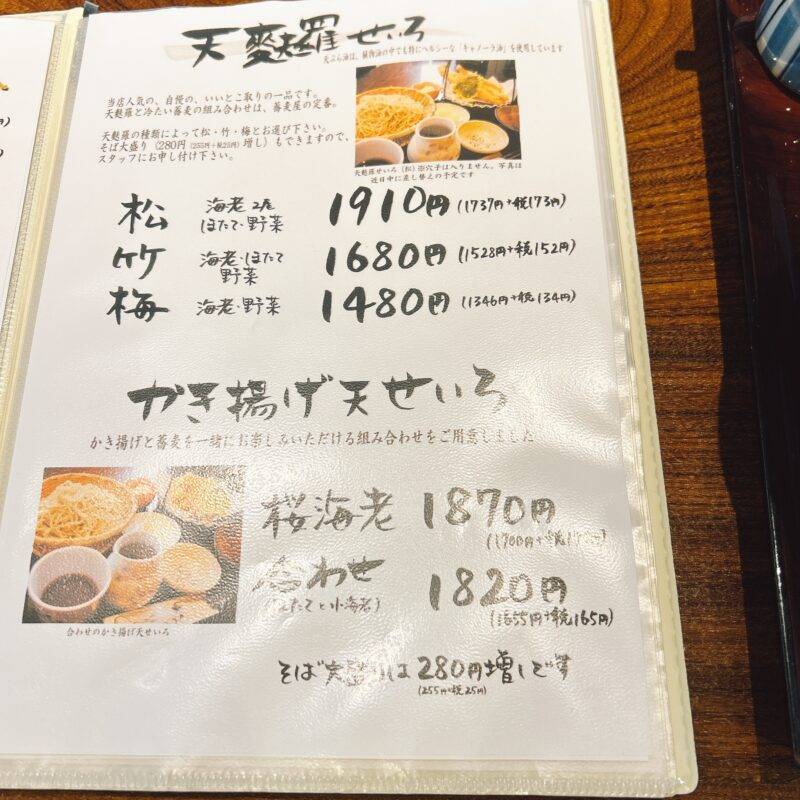 天麩羅せいろ
天ぷら油は、植物油の中でも特にヘルシーな「キャノーラ油」を使用しています
当店人気の、自慢の、いいとこ取りの一品です。
天麩羅と冷たい蕎麦の組み合わせは、蕎麦屋の定番。
天麩羅の種類によって松・竹・梅とお選び下さい。
そば大盛り(280円(255円+税25円)増し)もできますので、
スタッフにお申し付け下さい。
天麩羅せいろ(松)※穴子は入りません。写真は
近日中に差し替えの予定です
松 海老2尾 ほたて・野菜 1910円(1737円+税173円)
竹 海老・ほたて 野菜 1680円(1528円+税152円)
梅 海老・野菜 1480円(1346円+税134円)
かき揚げ天せいろ
かき揚げと蕎麦を一緒にお楽しみいただける組み合わせをご用意しました
桜海老 1870円
(1700円+税
合わせ 1820円
(ほたてと小海老) (1655円+税165円)
合わせのかき揚げ天せいろ
そば大盛りは280円増しです
(255円+税25円)